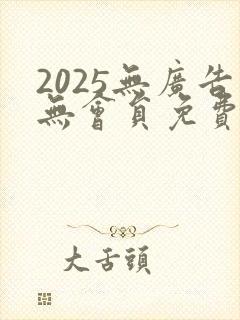 2025無廣告
無會員免費
大舌頭